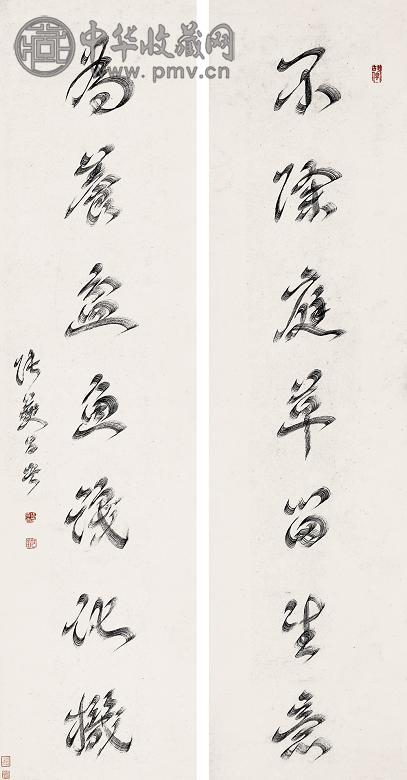 中华收藏网
www.pmv.cn
不除庭草留生意
為養盆魚識化機